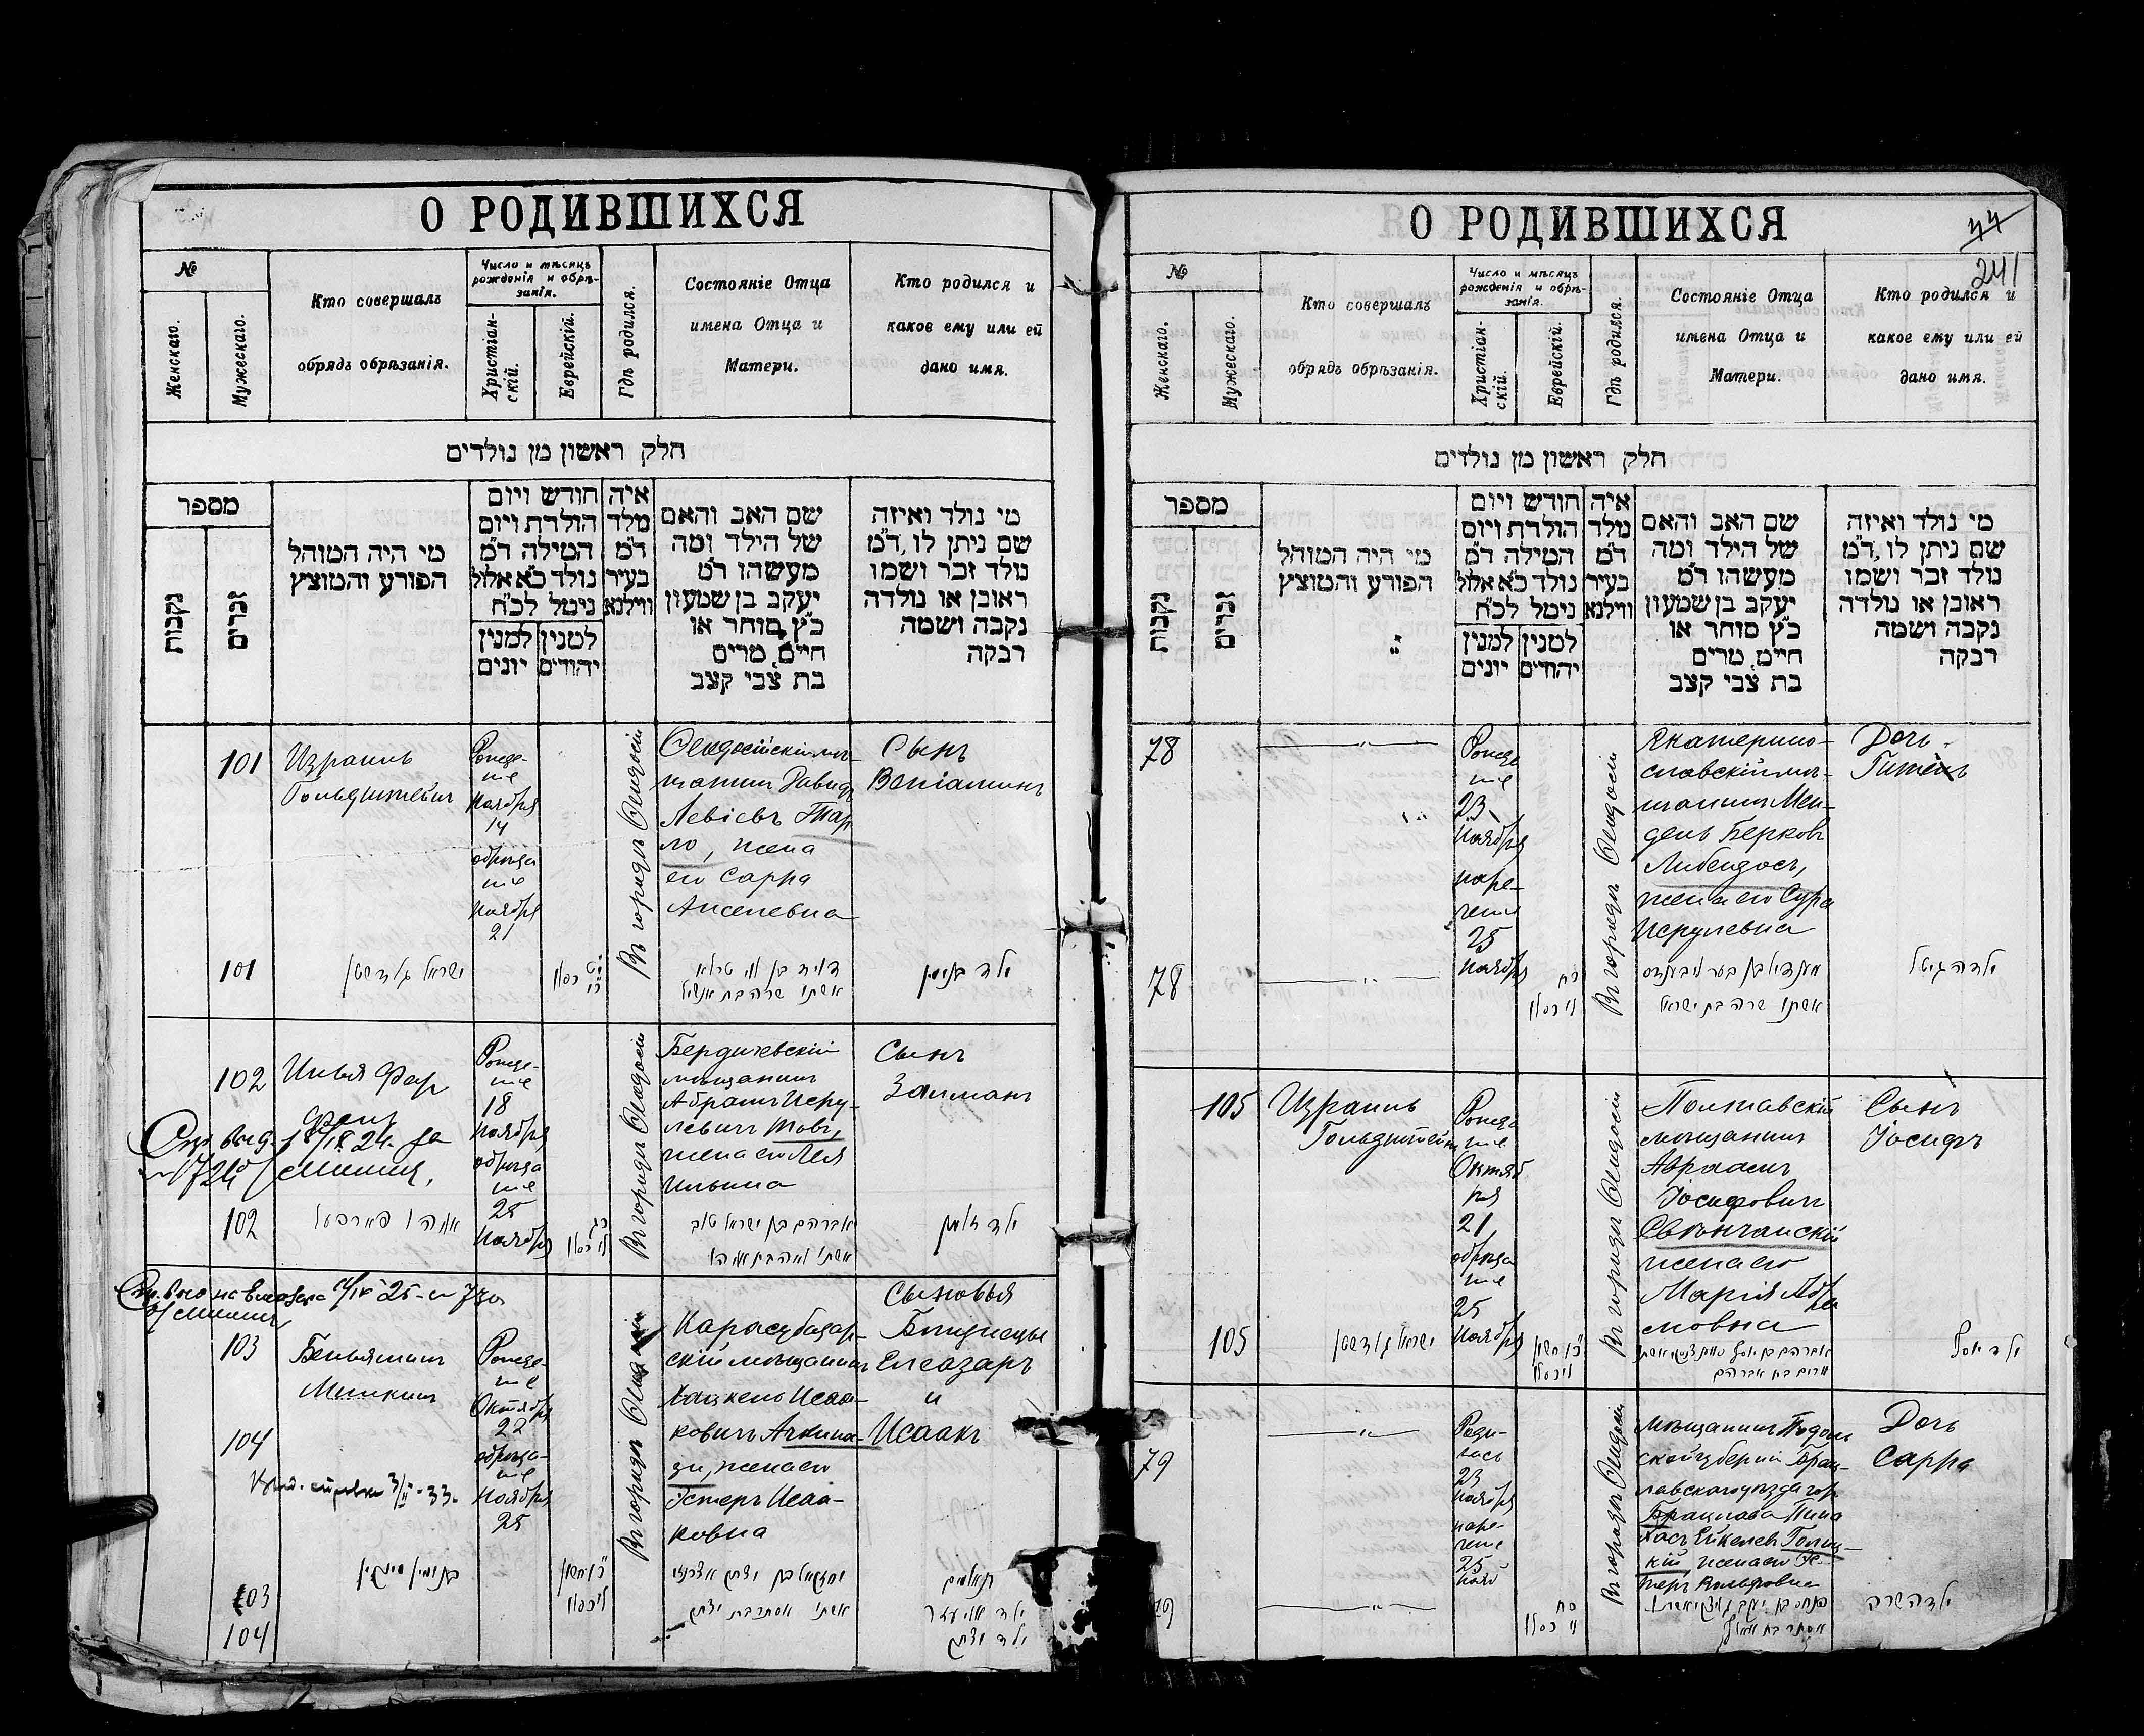 О РОДИВШИХСЯ
№
Женскаго.
Мужескаго.
Кто совершалъ
обрядъ обрѣзанія.
Число и мѣсяцъ
рожденія и обрѣ-
занія.
Христіан-
скій.
Еврейскій.
Гдѣ родился.
Состояніе Отца
имена Отца и
Матери.
Кто родился и
какое ему или ей
дано имя.
חלק ראשון מן נולדים
מספר
נקבות
זכרים
מי היה המוהל
הפורע והמוצץ
חודש ויום
הולדת ויום
המילה ד״מ
נולד כ״א אלול
נימל לכ״ח
למנין
יהודים
למנין
יונים
איה
מלד
ד״מ
בעיר
ווילנא
שם האב והאם
של הילד ומה
מעשהו ד״מ
יעקב בן שמעון
כ״ץ סוחר או
חיים, מרים
בת צבי קצב
מי נולד ואיזה
שם ניתן לו, ד״מ
נולד זכר ושמו
ראובן או נולדה
נקבה ושמה
רבקה
101
Израиль
Гольдштейнъ
Рожде-
ніе
Ноября
14
обрѣза
ніе
Ноября
21
Въ городѣ Ѳеодосіи
Ѳеодосійскій мѣ-
щанинъ Давидъ
Левіевъ Тар
ло, жена
его Сарра
Анселевна
Сынъ
Веніаминъ
101
ישראל גולדשטיין
דוד בן לוי טרלא
אשתו שרה בת אנשיל
ילד בנימין
102
Илья Фар
фель
Рожде-
ніе
18
Ноября
обрѣза
ніе
25
Ноября
Въ городѣ Ѳеодосіи
Бердичевскій
мѣщанинъ
Абрамъ Исру-
левичъ Товъ,
жена его Лея
Ильина
Сынъ
Залманъ
102
אליהו פארפעל
אברהם בן ישראל טוב
אשתו לאה בת אליהו
ילד זלמן
103
Беньяминъ
Минкинъ
104
Рожде-
ніе
Октября
22
обрѣза-
ніе
Ноября
25
Въ городѣ Ѳеодосіи
Карасубазар-
скій мѣщанинъ
Хацкель Исаа-
ковичъ Ачкина-
зи, жена его
Эстеръ Исаа-
ковна
Сыновья
Близнецы
Елеазаръ
и
Исаакъ
103
104
בנימין מינקין
יחזקאל בן יצחק אשכנזי
אשתו אסתר בת יצחק
תאומים
ילד אליעזר
ילד יצחק
О РОДИВШИХСЯ
44
241
№
Женскаго.
Мужескаго.
Кто совершалъ
обрядъ обрѣзанія.
Число и мѣсяцъ
рожденія и обрѣ-
занія.
Христіан-
скій.
Еврейскій.
Гдѣ родился.
Состояніе Отца
имена Отца и
Матери.
Кто родился и
какое ему или ей
дано имя.
חלק ראשון מן נולדים
מספר
נקבות
זכרים
מי היה המוהל
הפורע והמוצץ
חודש ויום
הולדת ויום
המילה ד״מ
נולד כ״א אלול
נימל לכ״ח
למנין
יהודים
למנין
יונים
איה
מלד
ד״מ
בעיר
ווילנא
שם האב והאם
של הילד ומה
מעשהו ד״מ
יעקב בן שמעון
כ״ץ סוחר או
חיים, מרים
בת צבי קצב
מי נולד ואיזה
שם ניתן לו, ד״מ
נולד זכר ושמו
ראובן או נולדה
נקבה ושמה
רבקה
78
Рожде
ніе
23
Ноября
наре-
ченіе
25
Ноября
Въ городѣ Ѳеодосіи
Екатерино-
славскій мѣ-
щанинъ Мен-
дель Берковъ
Либендосъ,
жена его Сура
Исрулевна
Дочь
Гитель
78
אשתו שרה בת ישראל
ילדה גיטל
105
Израиль
Гольдштейнъ
Рожде
ніе
Октяб
ря
21
обрѣза
ніе
25
Ноября
Въ городѣ Ѳеодосіи
Полтавскій
мѣщанинъ
Авраамъ
Іосифовичъ
жена его
Марія Абра
мовна
Сынъ
Іосифъ
105
ישראל גולדשטיין
מרים בת אברהם
ילד יוסף
79
Роди-
лась
23
Ноября
наре-
ченіе
25
Нояб
Въ городѣ Ѳеодосіи
Мѣщанинъ Подоль
ской губерніи Брац-
лавскаго уѣзда гор
Брацлава Пина
хасъ
жена его Эс-
теръ Вольфовна
Дочь
Сарра
79
ילדה שרה